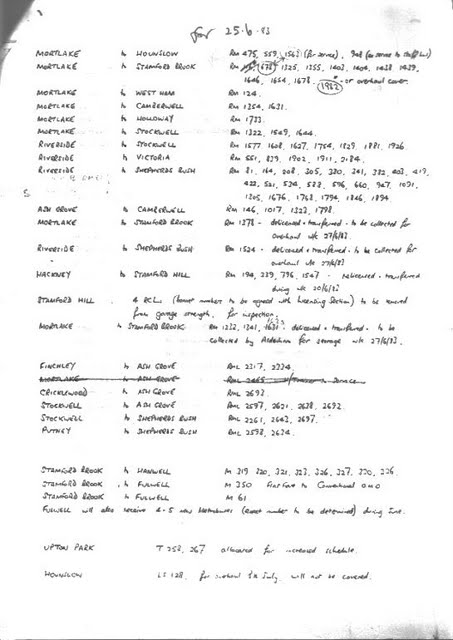 for 25.6.83
MORTLAKE to HOUNSLOW RM 475, 559, 1563 (for service),
MORTLAKE to STAMFORD BROOK RM 1325, 1355, 1403, 1404, 1438, 1439,
1646, 1654, 1678. 1982 - or overhaul cover.
MORTLAKE to WEST HAM RM 124.
MORTLAKE to CAMBERWELL RM 1354, 1631.
MORTLAKE to HOLLOWAY RM 1733.
MORTLAKE to STOCKWELL RM 1322, 1549, 1644.
RIVERSIDE to STOCKWELL RM 1577, 1608, 1627, 1754, 1829, 1881, 1926
RIVERSIDE to VICTORIA RM 551, 839, 1902, 1911, 2184.
RIVERSIDE to SHEPHERDS BUSH RM 81, 164, 208, 305, 330, 341, 382, 403, 419,
422, 521, 534, 588, 596, 660, 947, 1091,
1205, 1676, 1768, 1794, 1846, 1894
ASH GROVE to CAMBERWELL RM 146, 1017, 1323, 1798.
MORTLAKE to STAMFORD BROOK RM 1378 - delicensed + transferred - to be collected for
overhaul w/c 27/6/83
RIVERSIDE to SHEPHERDS BUSH RM 1524 - delicensed + transferred - to be collected for
overhaul w/c 27/6/83
HACKNEY to STAMFORD HILL RM 194, 239, 796, 1547 - Delicensed + transferred
during w/c 20/6/83
STAMFORD HILL. 4 RCL. (bonnet number to be agreed with Licensing Section) to be removed
from garage strength, for inspection.
MORTLAKE to STAMFORD BROOK. RM 1232, 1341, - delivered + transferred - to be
collected by Aldenham for storage w/c 27/6/83.
FINCHLEY to ASH GROVE RML 2317, 2334.
MORTLAKE to ASH GROVE RML 2465 service
CRICKLEWOOD to ASH GROVE RML 2693.
STOCKWELL to ASH GROVE RML 2597, 2621, 2638, 2692.
STOCKWELL to SHEPHERDS BUSH RML 2261, 2643, 2697.
PUTNEY to SHEPHERDS BUSH RML 2598, 2634.
STAMFORD BROOK to HANWELL M 319, 320, 321, 323, 326, 327, 330, 336.
STAMFORD BROOK to FULWELL M 350 Flat Fare to Conventional OMO
STAMFORD BROOK to FULWELL M 61
FULWELL will also receive 4-5 new Metrobuses (exact number to be determined) during June.
UPTON PARK T 258, 267 allocated for increased schedule.
HOUNSLOW LS 128, for overhaul July will not be covered.